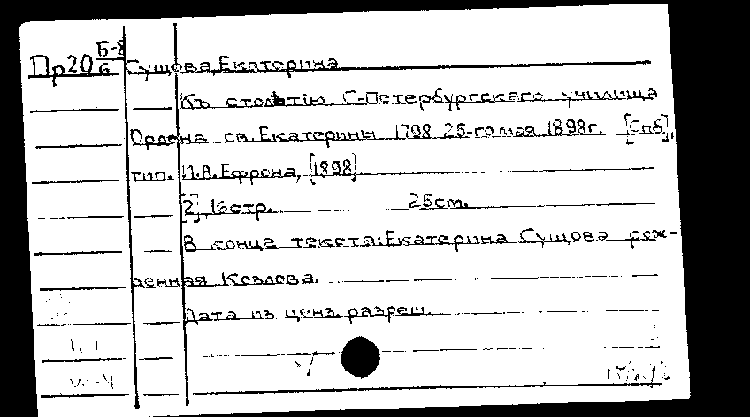 Пр20 Б-8/6 Сущова, Екатерина
Къ столѣтiю С-Петербургскаго училища
Ордена св. Екатерины 1798 25-го мая 1898г. [Спб],
тип. И.А.Ефрона, [1898]
[2], 16стр. 25см.
В конце текста: Екатерина Сущова рож-
денная Козлова.
Дата из ценз. разреш.